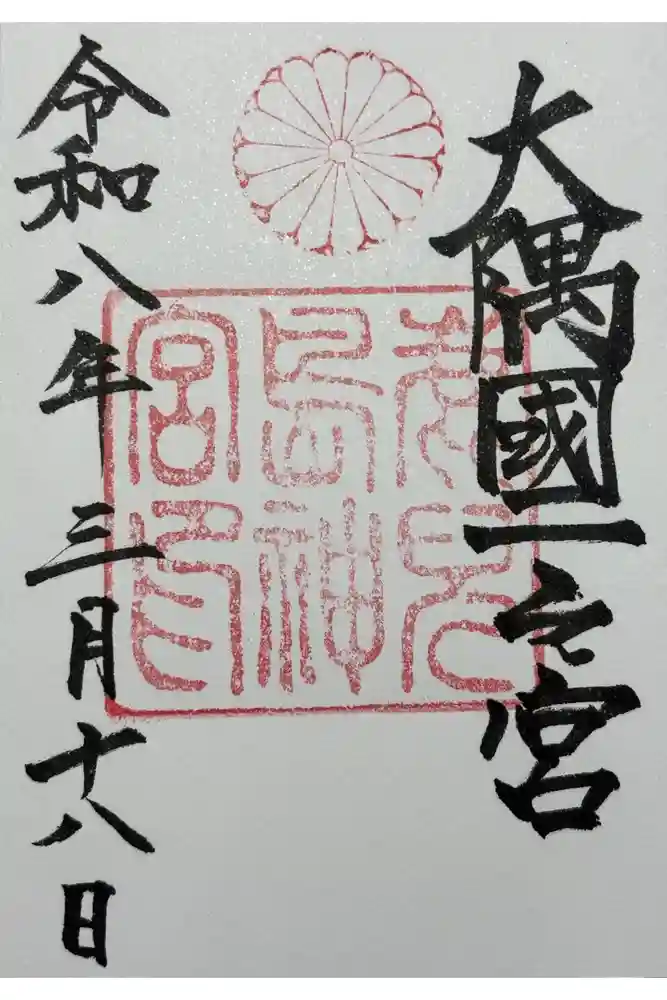 大隅國一之宮
鹿兒島神宮印
令和八年三月十八日